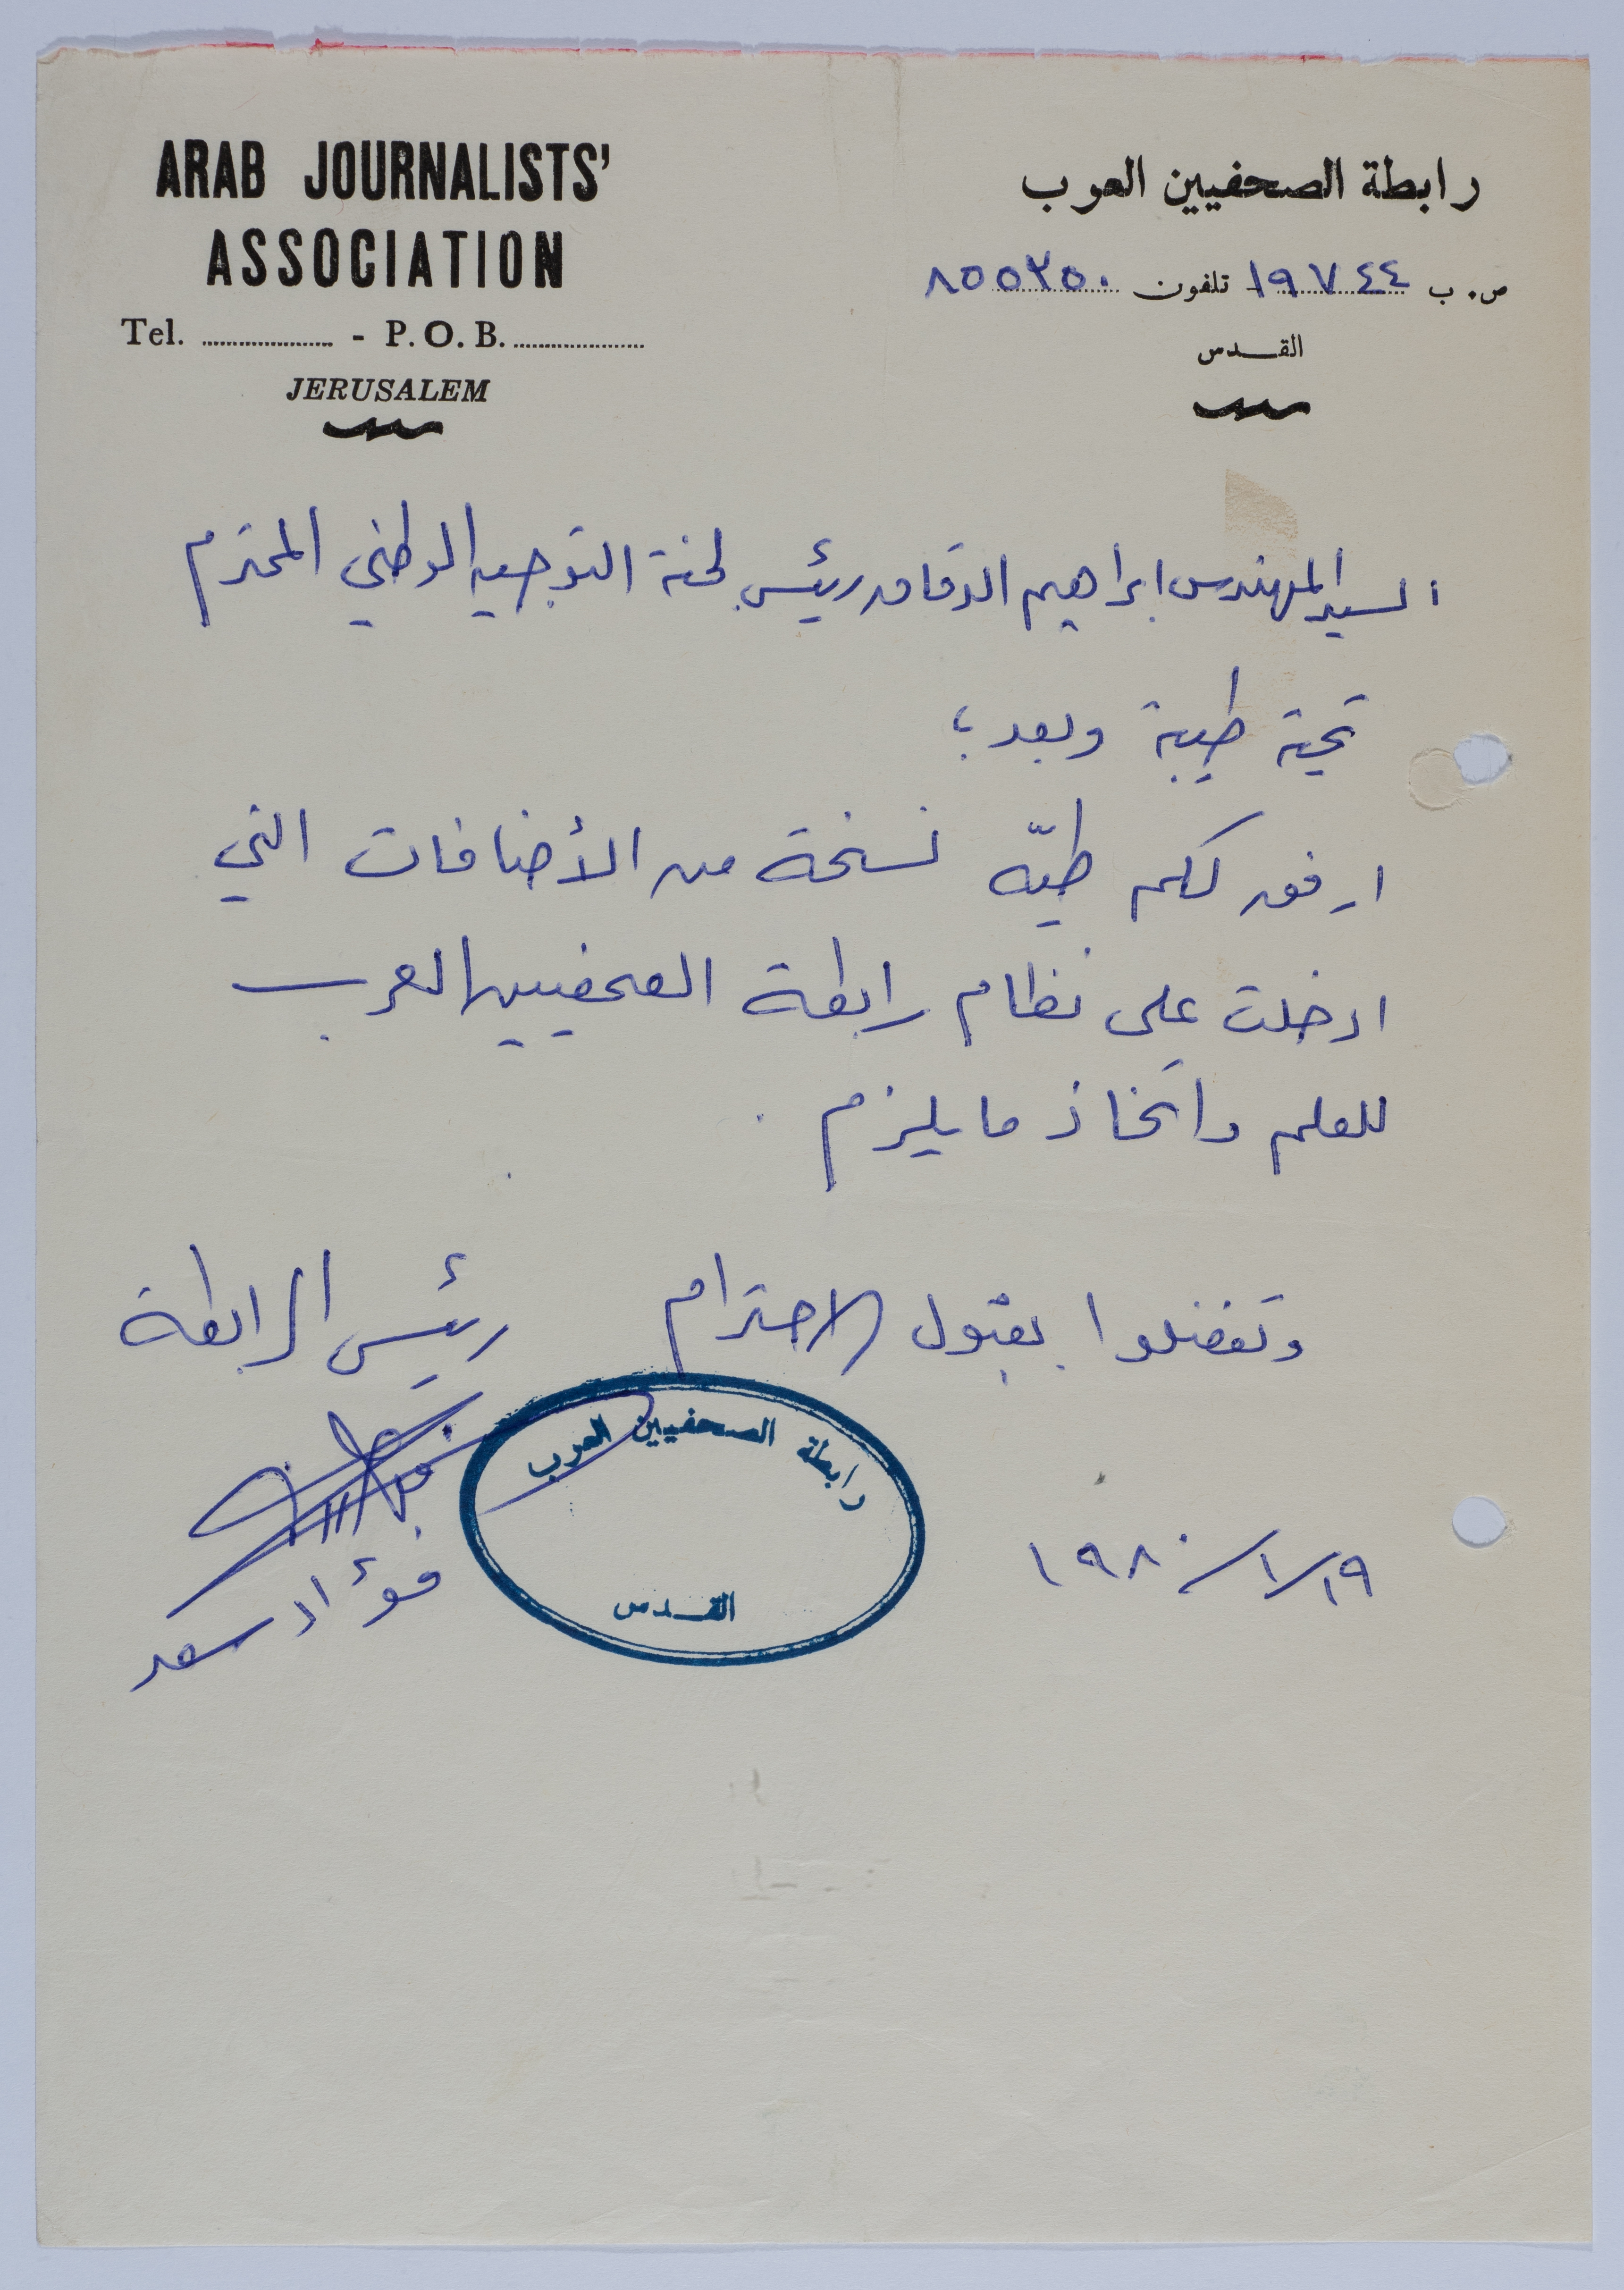 ARAB JOURNALISTS'
ASSOCIATION
Tel. .................... - P.O.B. ....................
JERUSALEM
رابطة الصحفيين العرب
ص. ب ١٩٧٤٤ تلفون ٨٥٥٢٥٠
القدس
السيد المهندس ابراهيم الدقاق رئيس لجنة التوجيه الوطني المحترم
تحية طيبة وبعد ؛
ارفق لكم طيّه نسخة من الأضافات التي
ادخلت على نظام رابطة الصحفيين العرب
للعلم واتخاذ ما يلزم .
وتفضلوا بقبول الاحترام رئيس الرابطة
رابطة الصحفيين العرب
القدس
فؤاد سعد
١٩/١/١٩٨٠